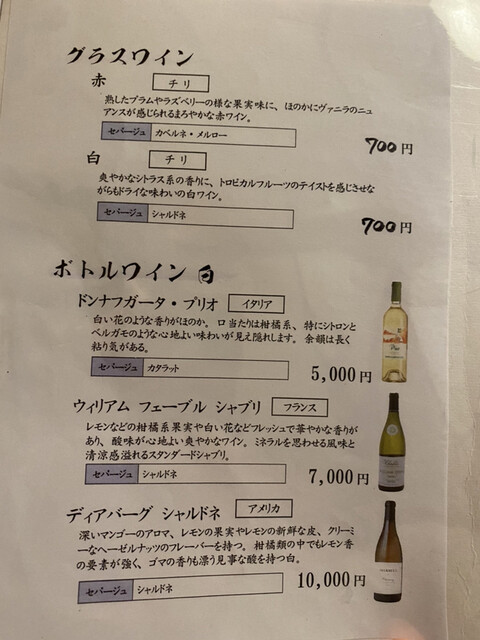 グラスワイン
赤 チリ
熟したプラムやラズベリーの様な果実味に、ほのかにヴァニラのニュ
アンスが感じられるまろやかな赤ワイン。
セパージュ カベルネ・メルロー
700円
白 チリ
爽やかなシトラス系の香りに、トロピカルフルーツのテイストを感じさせな
がらもドライな味わいの白ワイン。
セパージュ シャルドネ
700円
ボトルワイン 白
ドンナフガータ・プリオ イタリア
白い花のような香りがほのか。口当たりは柑橘系、特にシトロンと
ベルガモのような心地よい味わいが見え隠れします。余韻は長く
粘り気がある。
セパージュ カタラット
5,000円
ウィリアム フェーブル シャブリ フランス
レモンなどの柑橘系果実や白い花などフレッシュで華やかな香りが
あり、酸味が心地よい爽やかなワイン。ミネラルを思わせる風味と
清涼感溢れるスタンダードシャブリ。
セパージュ シャルドネ
7,000円
ディアバーグ シャルドネ アメリカ
深いマンゴーのアロマ、レモンの果実やレモンの新鮮な皮、クリーミ
ーなヘーゼルナッツのフレーバーを持つ。柑橘類の中でもレモン香
の要素が強く、ゴマの香りも漂う見事な酸を持つ白。
セパージュ シャルドネ
10,000円